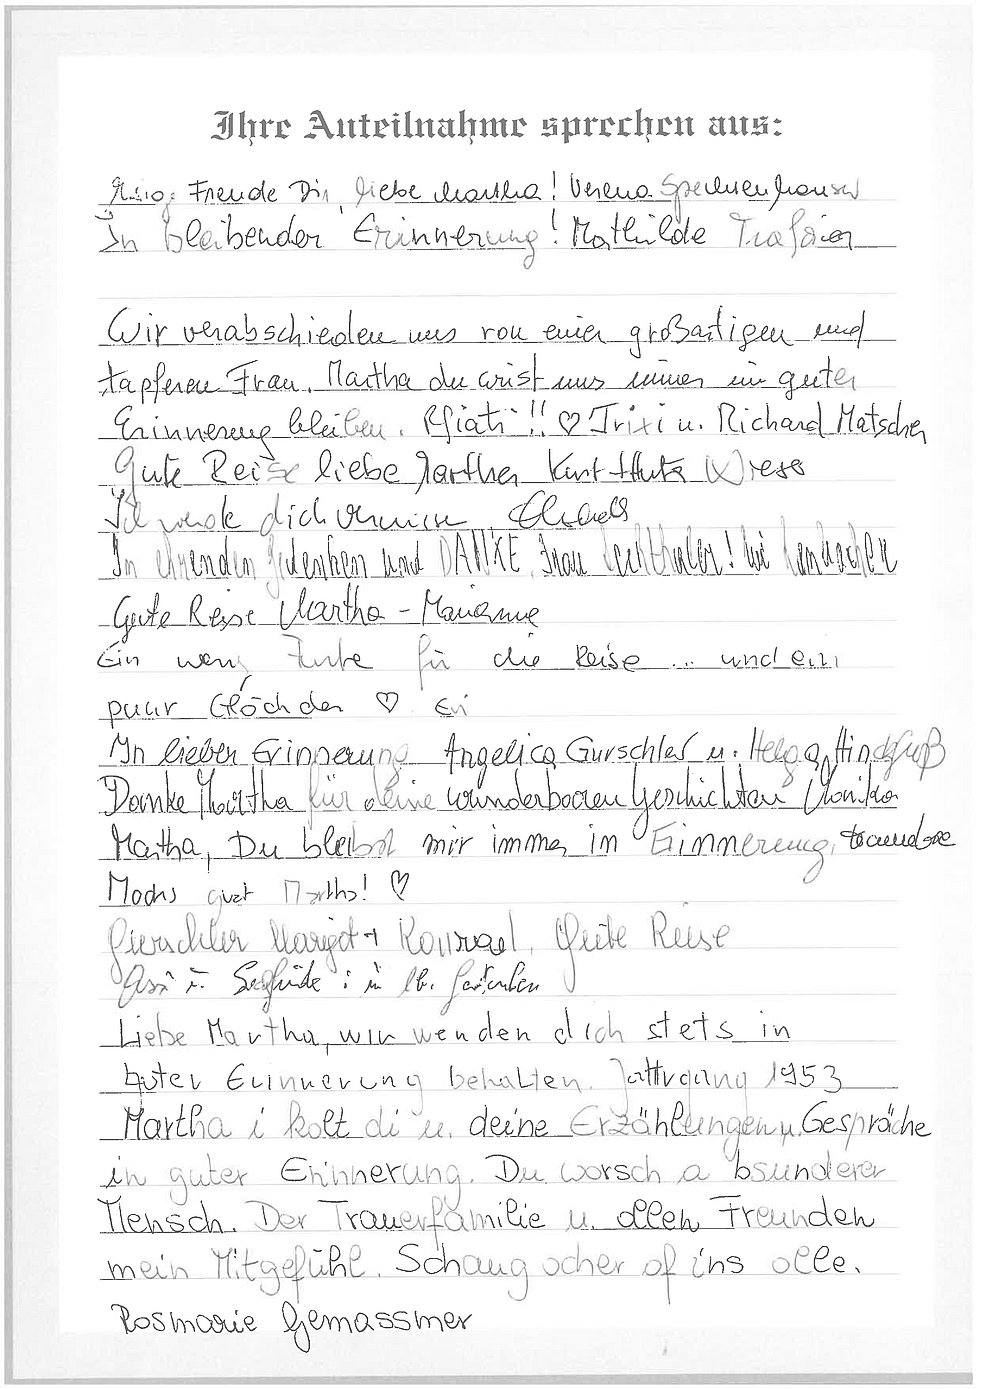 Ihre Anteilnahme sprechen aus:
Freude Dir, liebe Martha! Verena Spechtenhauser
In bleibender Erinnerung! Mathilde Trafoier
Wir verabschieden uns von einer großartigen und
tapferen Frau. Martha du wirst uns immer in guter
Erinnerung bleiben. Pfiati!! ♡ Trixi u. Richard Matscher
Gute Reise liebe Martha Kurt
Ich werde dich vermissen
In ehrenden Gedenken und DANKE, Frau
Gute Reise Martha - Marianne
Ein wenig Farbe für die Reise ... und ein
paar Glöckchen ♡ Evi
In lieber Erinnerung Angelica Gurschler u. Helga Hindfuß
Danke Martha für deine wunderbaren Geschichten Monika
Martha, Du bleibst mir immer in Erinnerung,
Mochs guat Martha! ♡
Gurschler Margot + Konrad, Gute Reise
Liebe Martha, wir werden dich stets in
guter Erinnerung behalten. Jahrgang 1953
Martha i holt di u. deine Erzählungen u. Gespräche
in guter Erinnerung. Du worsch a bsunderer
Mensch. Der Trauerfamilie u. ollen Freunden
mein Mitgefühl. Schaug ocher of ins olle.
Rosmarie Gemassmer